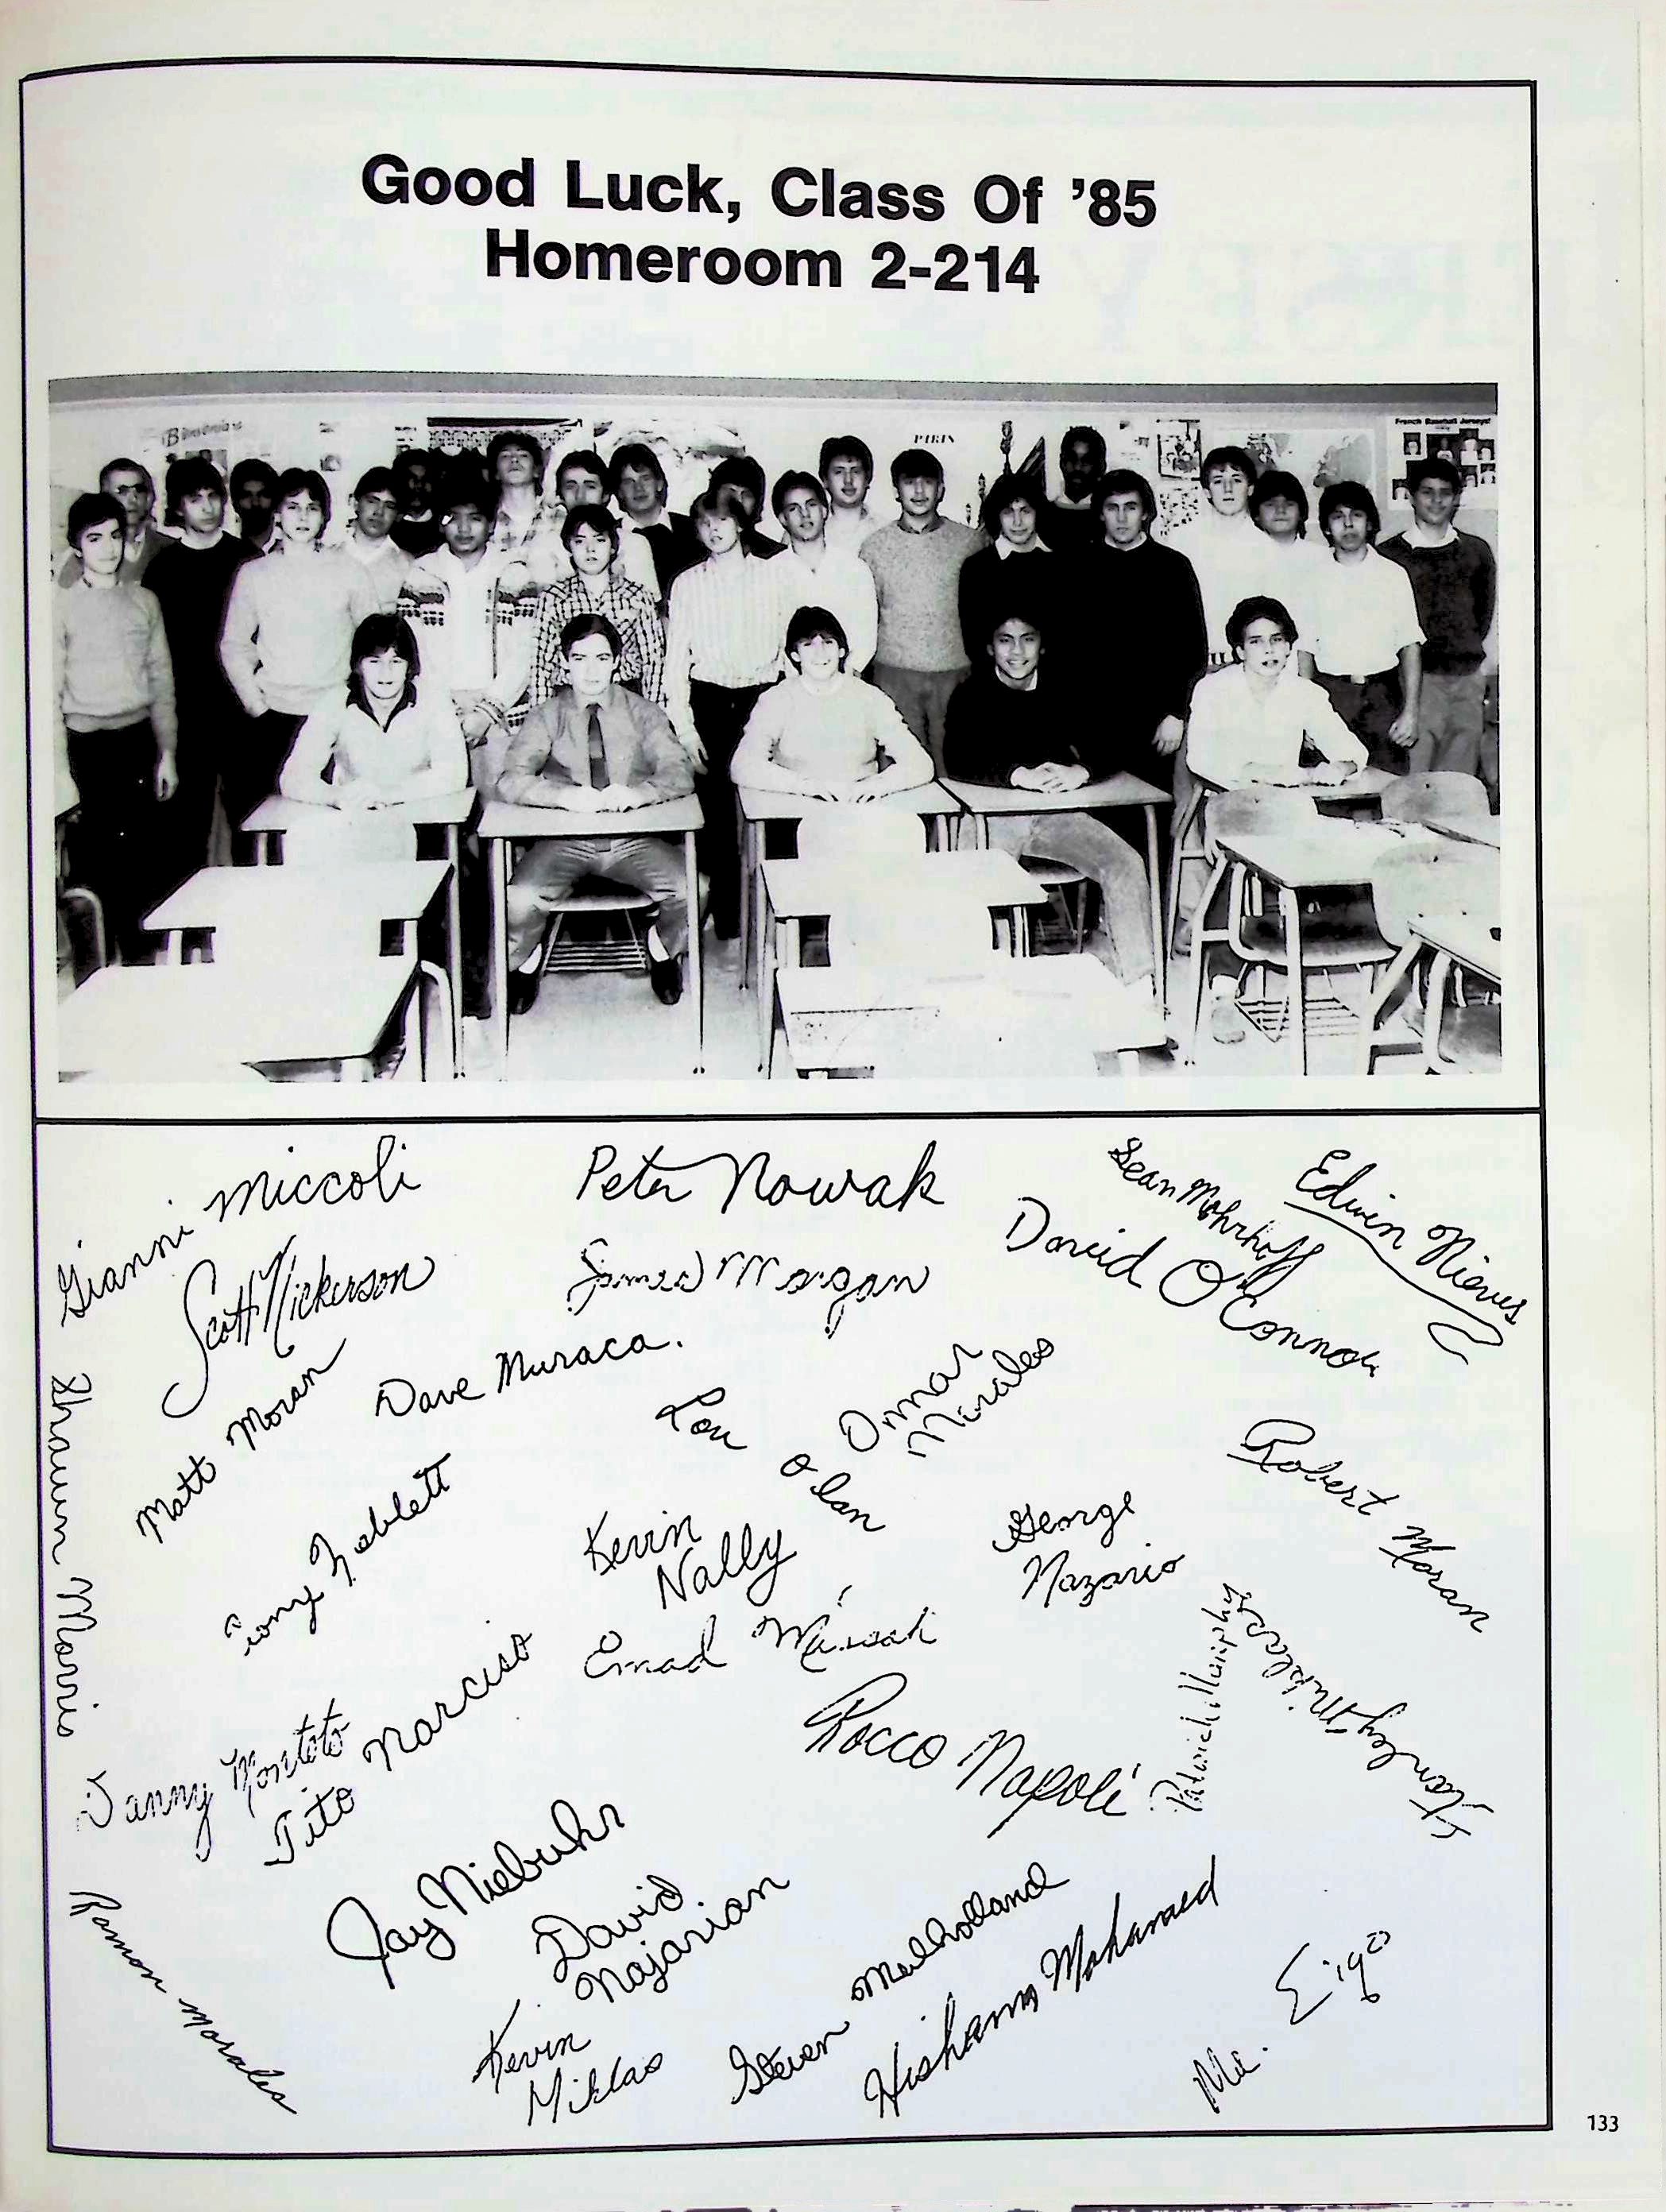 Good Luck, Class Of '85
Homeroom 2-214
PARIS
French Baseball Jerseys!
Gianni Miccoli
Peter Nowak
Sean Mohrhoff
Edwin Nieves
David O'Connor
Scott Nickerson
James Morgan
Shawn Morris
Matt Moran
Dave Muraca.
Ron Olan
Omar
Morales
Robert Moran
Tony Noblett
Kevin
Nally
George
Nazario
Emad
Patrick Murphy
Stanley
Danny Montoto
Tito Narciso
Rocco Napoli
Jay Niebuhr
David
Najarian
Ramon Morales
Kevin
Miklas
Steven Mulholland
Hisham Mohamed
Mr. Eigo
133